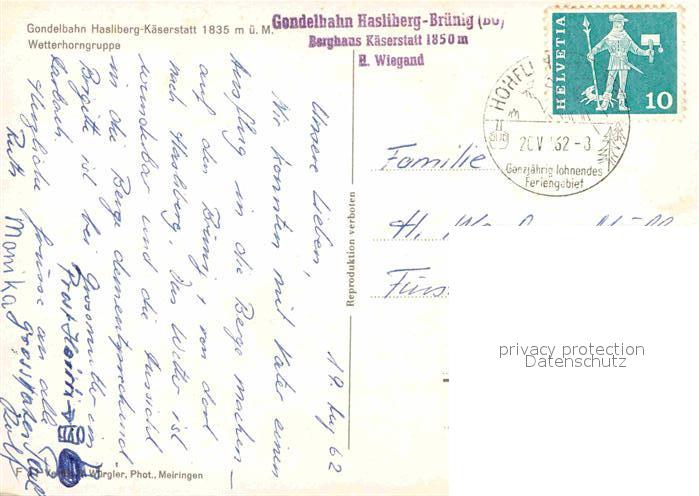 Gondelbahn Hasliberg-Käserstatt 1835 m ü. M.
Wetterhorngruppe
Gondelbahn Hasliberg-Brünig (BO)
Berghaus Käserstatt 1850 m
H. Wiegand
HELVETIA
10
HOHFLU
20.V.62-8
Ganzjährig lohnendes
Feriengebiet
Unsere Lieben,
19. 62
Wir konnten mit Vater einen
Ausflug in die Berge machen –
auf den Brünig, von dort
nach Hasliberg. Das Wetter ist
wunderbar und die Aussicht
in die Berge dementsprechend
Brigitte ist bei Grossmutter in
Herzliche Grüsse an alle
Ruth
Monika
Rolf
Reproduktion verboten
Familie
H.
privacy protection
Datenschutz
Würgler, Phot., Meiringen